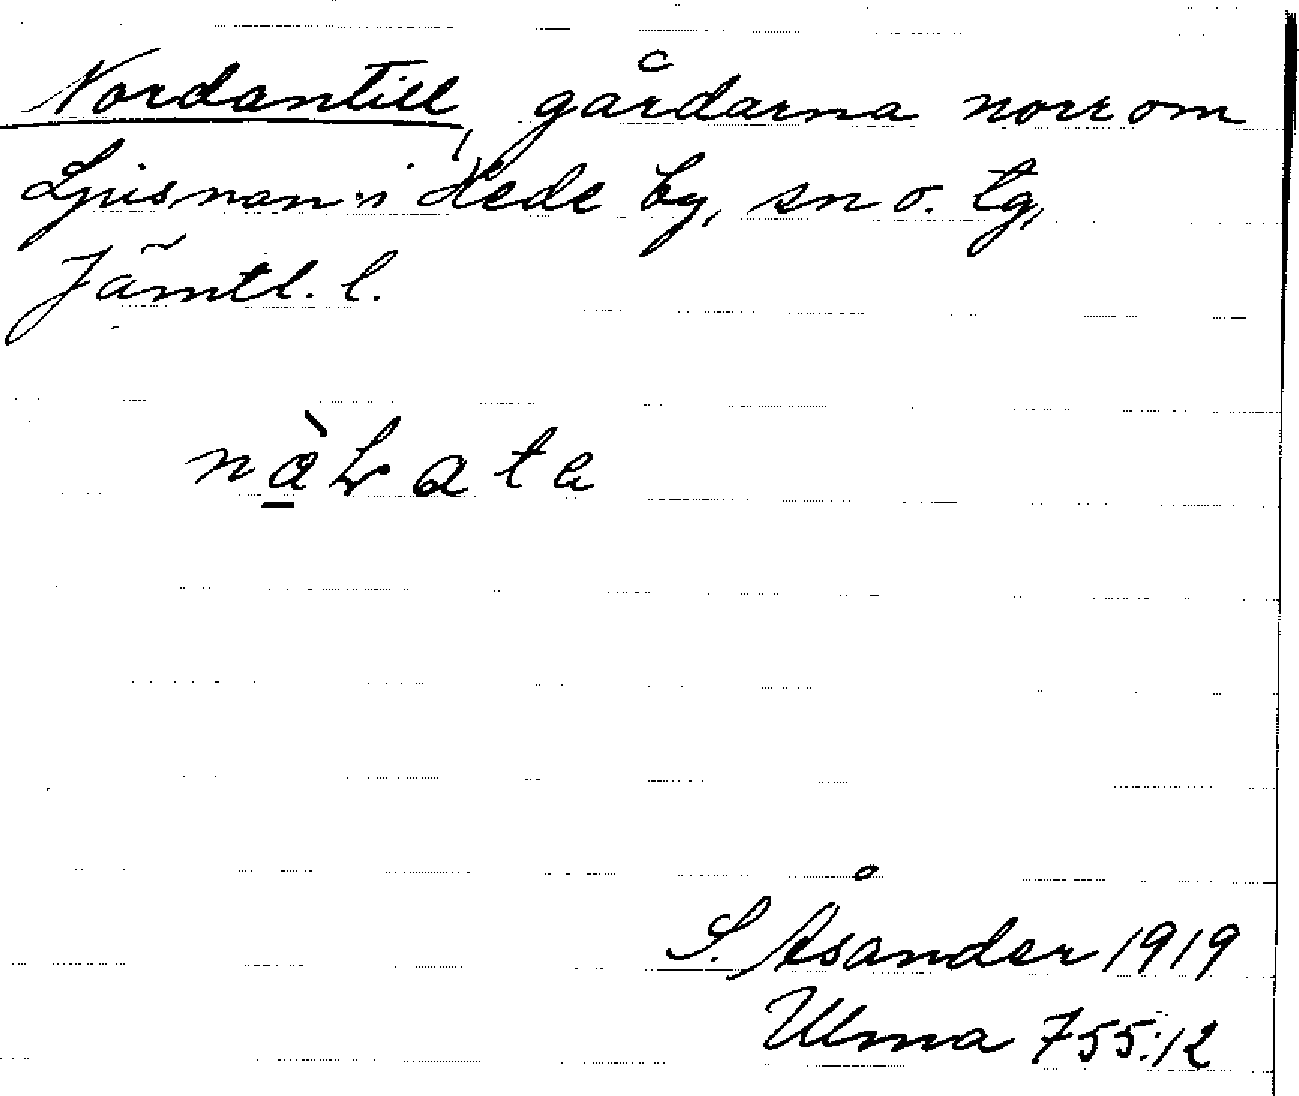 Nordantill, gårdarna norr om
Ljusnan i Hede by, sn o. tg,
Jämtl. l.
nàLate
S. Åsander 1919
Ulma 755:12